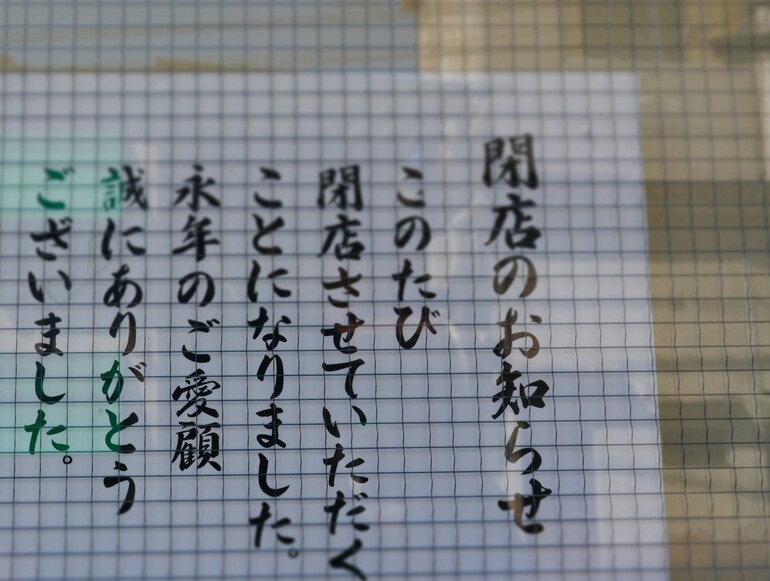 閉店のお知らせ
このたび
閉店させていただく
ことになりました。
永年のご愛顧
誠にありがとう
ございました。